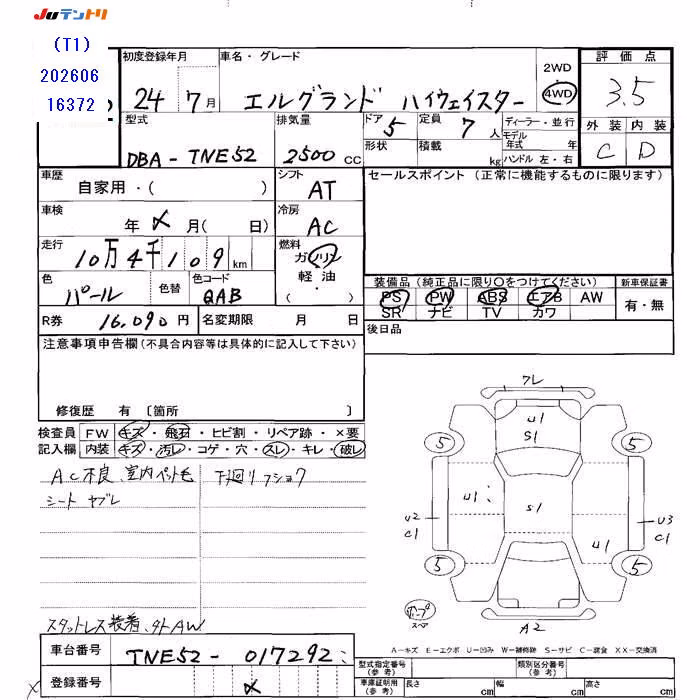 JUテントリ
(T1)
202606
16372
初度登録年月 車名・グレード 2WD 評価点
24 7月 エルグランド ハイウェイスター 4WD 3.5
型式 排気量 ドア 定員 ディーラー・並行 外装 内装
DBA-TNE52 2500cc 5 7人 モデル年式 年 C D
形状 積載 kg ハンドル 左・右
車歴 シフト セールスポイント(正常に機能するものに限ります)
自家用・( ) AT
車検 冷房
年 メ 月( 日) AC
走行 燃料
10万4千109km ガソリン
軽・油
・( )
色 色替 色コード 装備品(純正品に限り○をつけてください) 新車保証書
パール QAB PS PW ABS エアB AW 有・無
SR ナビ TV カワ
R券 16,090円 名変期限 月 日 後日品
注意事項申告欄(不具合内容等は具体的に記入して下さい)
修復歴 有 〔箇所 〕
検査員 FW キズ・飛石・ヒビ割・リペア跡・×要
記入欄 内装 キズ・汚レ・コゲ・穴・スレ・キレ・破レ
AC不良、室内ペット毛 下廻リフショク
シートヤブレ
ワレ
U1
S1
5 5
U1 S1
U2 U3
C1 C1
U1
5 5
スペア
A2
スタットレス装着、外AW
A-キズ E-エクボ U-凹み W-補修跡 S-サビ C-腐食 XX-交換済
車台番号 TNE52-017292
登録番号 メ
型式指定番号(参考) 類別区分番号(参考)
車庫証明用(参考) 長さ cm 幅 cm 高さ cm